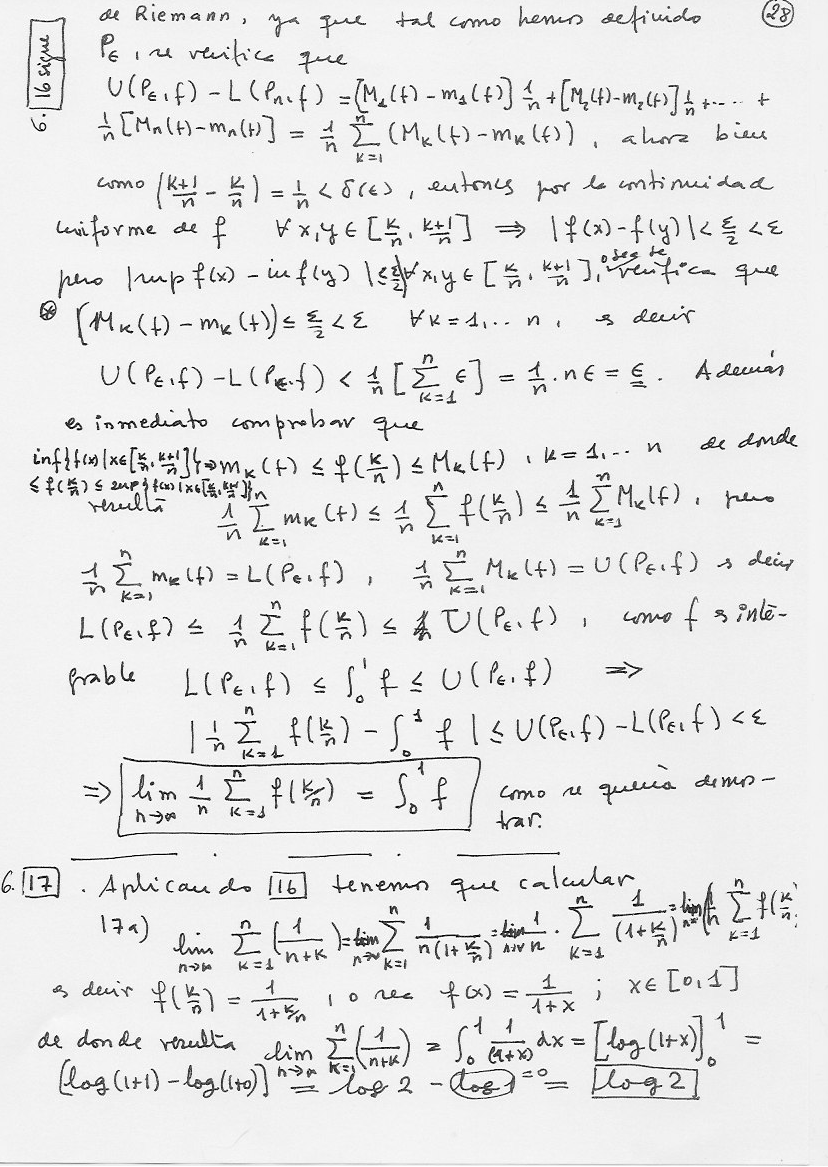 de Riemann, ya que tal como hemos definido (28)
6. 16 sigue
Pϵ, se verifica que
U(Pϵ,f) - L(Pn,f) = [M1(f) - m1(f)] 1/n + [M2(f)-m2(f)] 1/n + ... +
1/n [Mn(f)-mn(f)] = 1/n Σ_{k=1}^{n} (Mk(f)-mk(f)), ahora bien
como (k+1/n - k/n) = 1/n < δ(ϵ), entonces por la continuidad
uniforme de f ∀x,y ∈ [k/n, k+1/n] ⇒ |f(x)-f(y)| < ε/2 < ε
pero |sup f(x) - inf f(y)| ≤ ε/2 ∀x,y ∈ [k/n, k+1/n], o sea se verifica que
⊛ (Mk(f) - mk(f)) ≤ ε/2 < ε ∀k=1,... n, es decir
U(Pϵ,f) - L(Pϵ,f) < 1/n [Σ_{k=1}^{n} ϵ] = 1/n · nϵ = ϵ. Además
es inmediato comprobar que
inf{f(x)|x∈[k/n, k+1/n]} ⇒ mk(f) ≤ f(k/n) ≤ Mk(f), k=1,... n de donde
≤ f(k/n) ≤ sup{f(x)|x∈[k/n, k+1/n]}
resulta 1/n Σ_{k=1}^{n} mk(f) ≤ 1/n Σ_{k=1}^{n} f(k/n) ≤ 1/n Σ_{k=1}^{n} Mk(f), pero
1/n Σ_{k=1}^{n} mk(f) = L(Pϵ,f), 1/n Σ_{k=1}^{n} Mk(f) = U(Pϵ,f) es decir
L(Pϵ,f) ≤ 1/n Σ_{k=1}^{n} f(k/n) ≤ U(Pϵ,f), como f es inte-
grable L(Pϵ,f) ≤ ∫_0^1 f ≤ U(Pϵ,f) ⇒
|1/n Σ_{k=1}^{n} f(k/n) - ∫_0^1 f| ≤ U(Pϵ,f) - L(Pϵ,f) < ε
⇒ lim_{n→∞} 1/n Σ_{k=1}^{n} f(k/n) = ∫_0^1 f como se quería demos-
trar.
6. 17. Aplicando 16 tenemos que calcular
17a) lim_{n→∞} Σ_{k=1}^{n} (1/n+k) = lim_{n→∞} Σ_{k=1}^{n} 1/n(1+k/n) = lim_{n→∞} 1/n · Σ_{k=1}^{n} 1/(1+k/n) = lim_{n→∞} (1/n Σ_{k=1}^{n} f(k/n)
es decir f(k/n) = 1/1+k/n, o sea f(x) = 1/1+x ; x∈[0,1]
de donde resulta lim_{n→∞} Σ_{k=1}^{n} (1/n+k) = ∫_0^1 1/(1+x) dx = [log(1+x)]_0^1 =
[log(1+1) - log(1+0)] = log 2 - log 1 = 0 = log 2